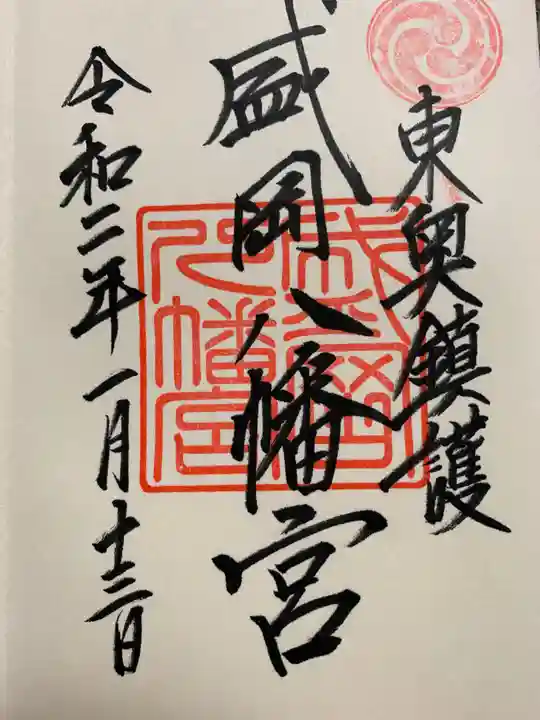 東奥鎮護
盛岡八幡宮
令和二年一月十三日
盛岡
八幡宮